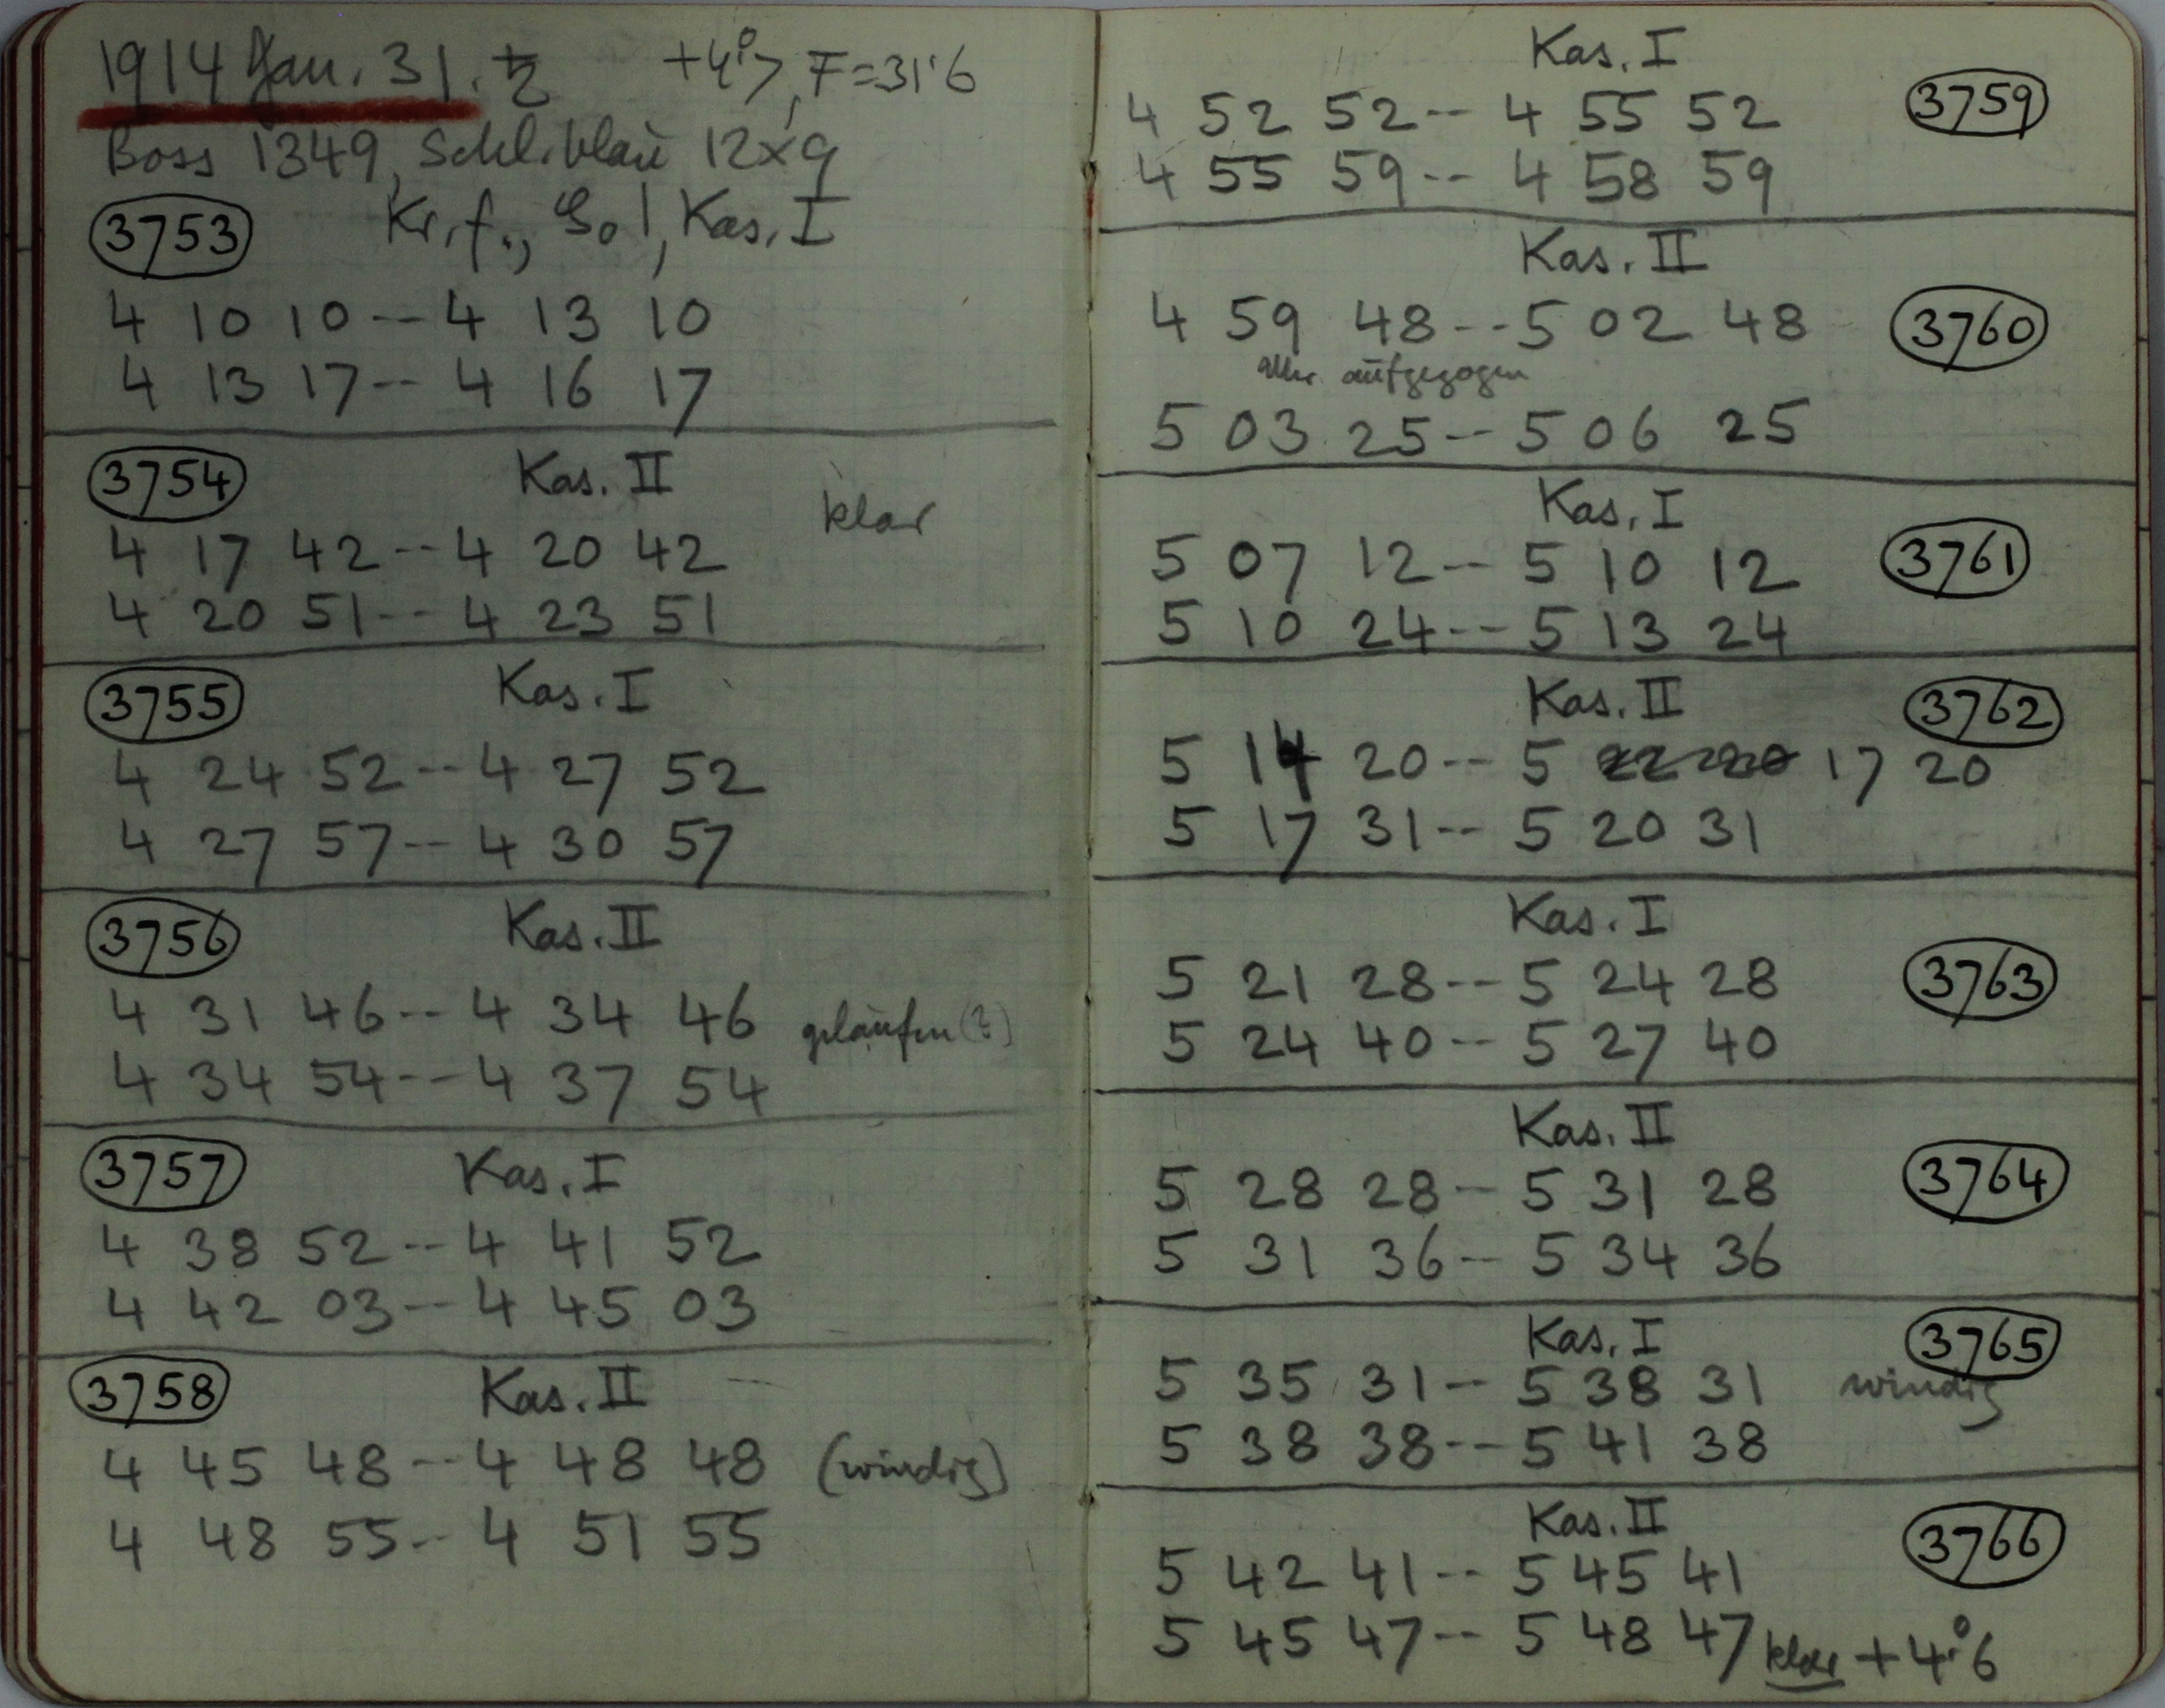 1914 Jan. 31. ♄ +4°.7, F=31.6
Boss 1349, Schl. blau 12x9
3753 Kr. f., Kas. I
4 10 10 -- 4 13 10
4 13 17 -- 4 16 17
3754 Kas. II
klar
4 17 42 -- 4 20 42
4 20 51 -- 4 23 51
3755 Kas. I
4 24 52 -- 4 27 52
4 27 57 -- 4 30 57
3756 Kas. II
4 31 46 -- 4 34 46 gelaufen (?)
4 34 54 -- 4 37 54
3757 Kas. I
4 38 52 -- 4 41 52
4 42 03 -- 4 45 03
3758 Kas. II
4 45 48 -- 4 48 48 (windig)
4 48 55 -- 4 51 55
Kas. I
4 52 52 -- 4 55 52 3759
4 55 59 -- 4 58 59
Kas. II
4 59 48 -- 5 02 48 3760
aufgezogen
5 03 25 -- 5 06 25
Kas. I
5 07 12 -- 5 10 12 3761
5 10 24 -- 5 13 24
Kas. II 3762
5 14 20 -- 5 17 20
5 17 31 -- 5 20 31
Kas. I
5 21 28 -- 5 24 28 3763
5 24 40 -- 5 27 40
Kas. II
5 28 28 -- 5 31 28 3764
5 31 36 -- 5 34 36
Kas. I 3765
5 35 31 -- 5 38 31 windig
5 38 38 -- 5 41 38
Kas. II 3766
5 42 41 -- 5 45 41
5 45 47 -- 5 48 47 klar +4°.6